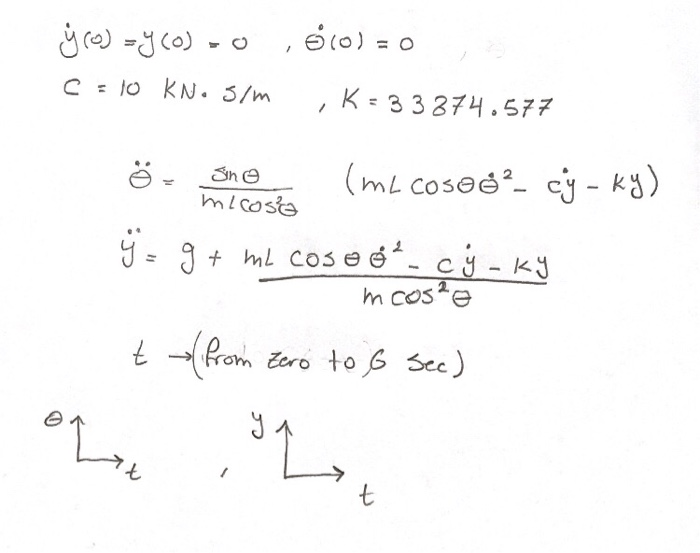 ẏ(0) = y(0) = 0 , θ̇(0) = 0
C = 10 KN. S/m , K = 33874.577
θ̈ = sinθ / mLcos²θ (mL cosθ θ̇² - cẏ - ky)
ÿ = g + mL cosθ θ̇² - cẏ - ky / m cos²θ
t → (from zero to 6 sec)
θ t , y t